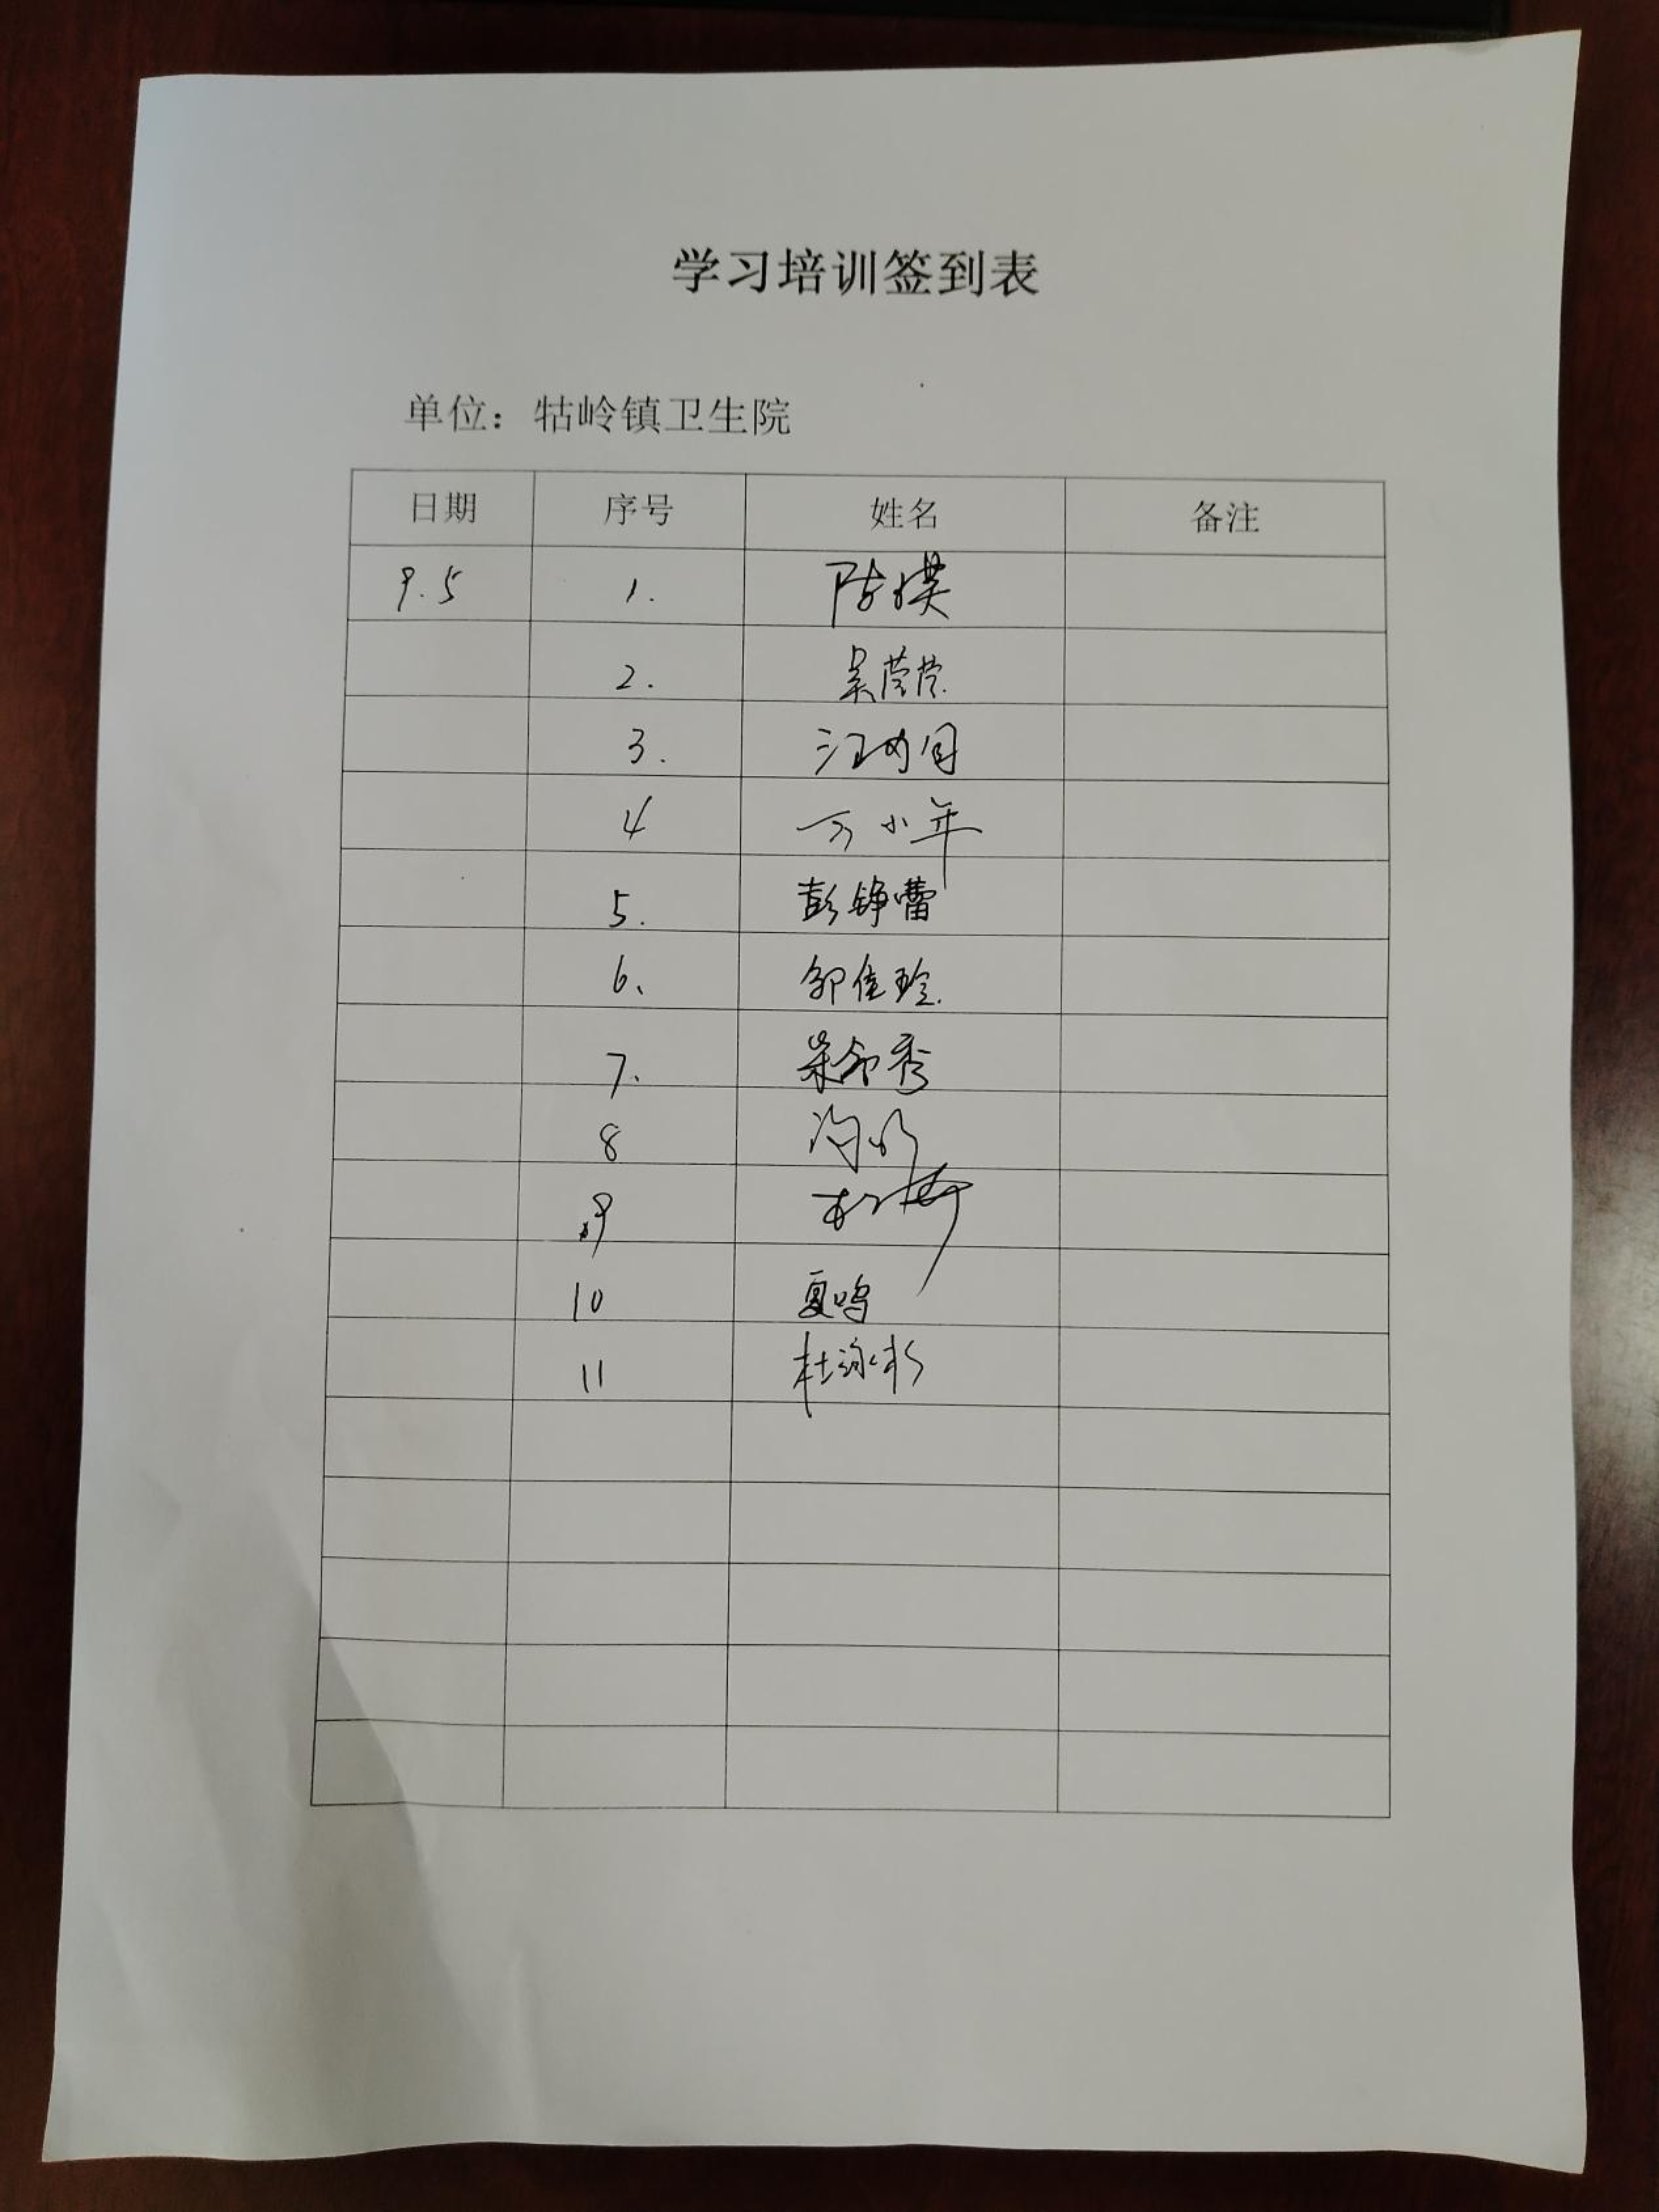 学习培训签到表
单位：牯岭镇卫生院
日期 序号 姓名 备注
9.5 1.
2. 吴莹莹
3.
4 万小年
5. 彭铮蕾
6、 邹佳玲
7、
8
9
10 夏鸣
11 杜泳杉